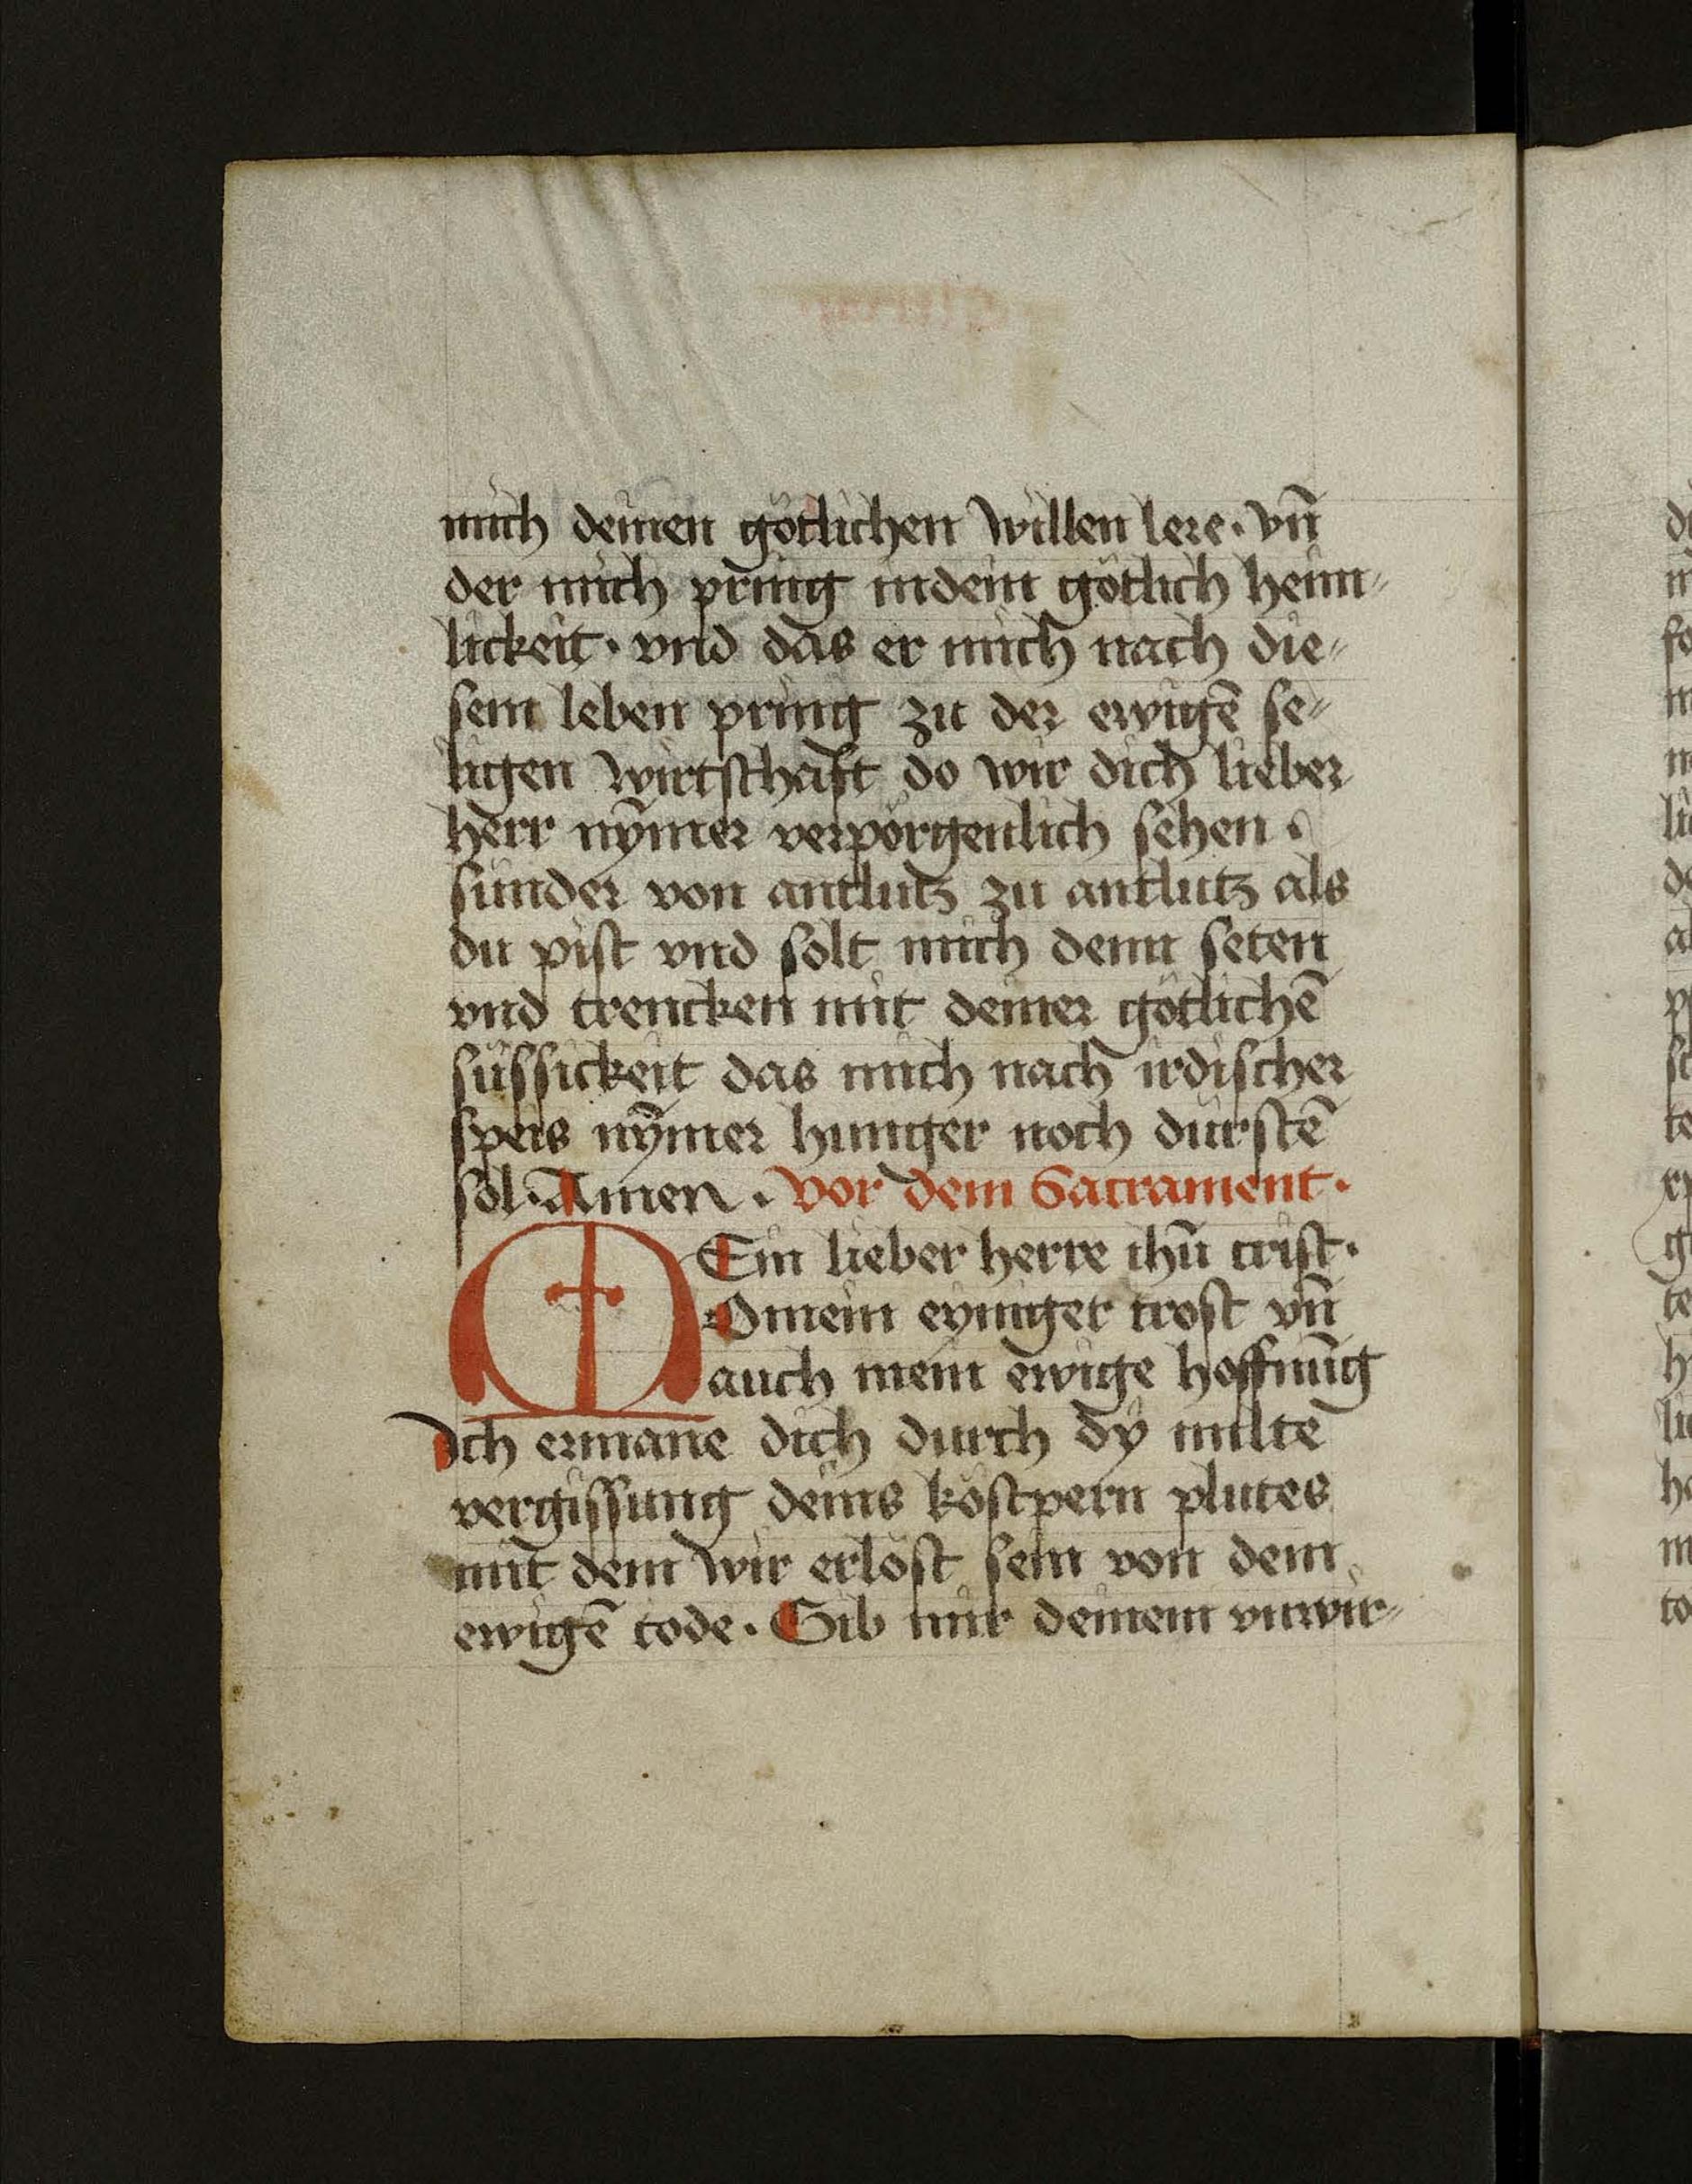 mich deinen götlichen willen lere · vn̄
der mich pring indein götlich heim⸗
lickeit · vnd das er mich nach die⸗
sem leben pring zu der ewigē se⸗
ligen wirtschaft do wir dich lieber
herr nȳmer verporgenlich sehen ·
sunder von antlutz zu antlutz als
du pist vnd solt mich denn seten
vnd trencken mit deiner götlichē
süssickeit das mich nach irdischer
speis nȳmer hunger noch durstē
sol · Amen · Vor dem Sacrament ·
MEin lieber herre ihū crist ·
O mein eyniger trost vn̄
auch mein ewige hoffnūg
Ich ermane dich durch dy milte
vergissung deins köstpern plutes
mit dem wir erlöst sein von dem
ewigē tode · Gib mir deinem vnwir⸗